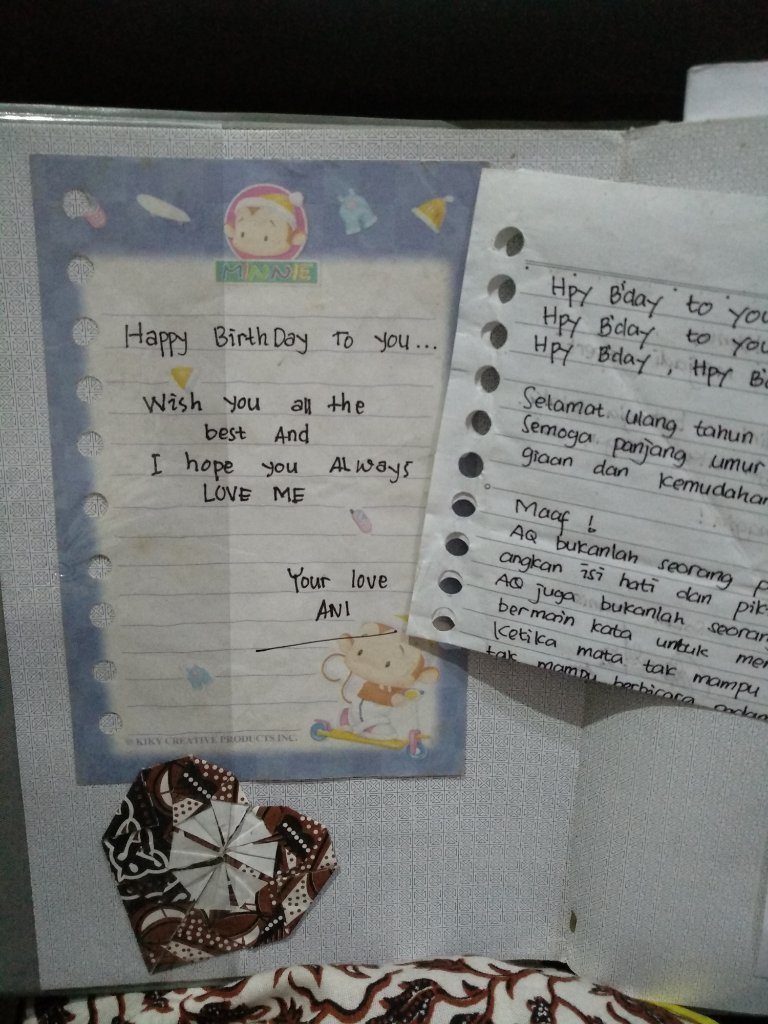 MINNIE
Happy BirthDay To you...
Wish you all the
best And
I hope you ALWays
LOVE ME
Your love
ANI
© KIKY CREATIVE PRODUCTS INC.
Hpy B'day to you
Hpy B'day to you
Hpy B'day, Hpy
Selamat ulang tahun
Semoga panjang umur
giaan dan kemudahan
Maaf !
AQ bukanlah seorang
angkan isi hati dan
AQ juga bukanlah seorang
bermain kata untuk
Ketika mata tak mampu
tak mampu berbicara